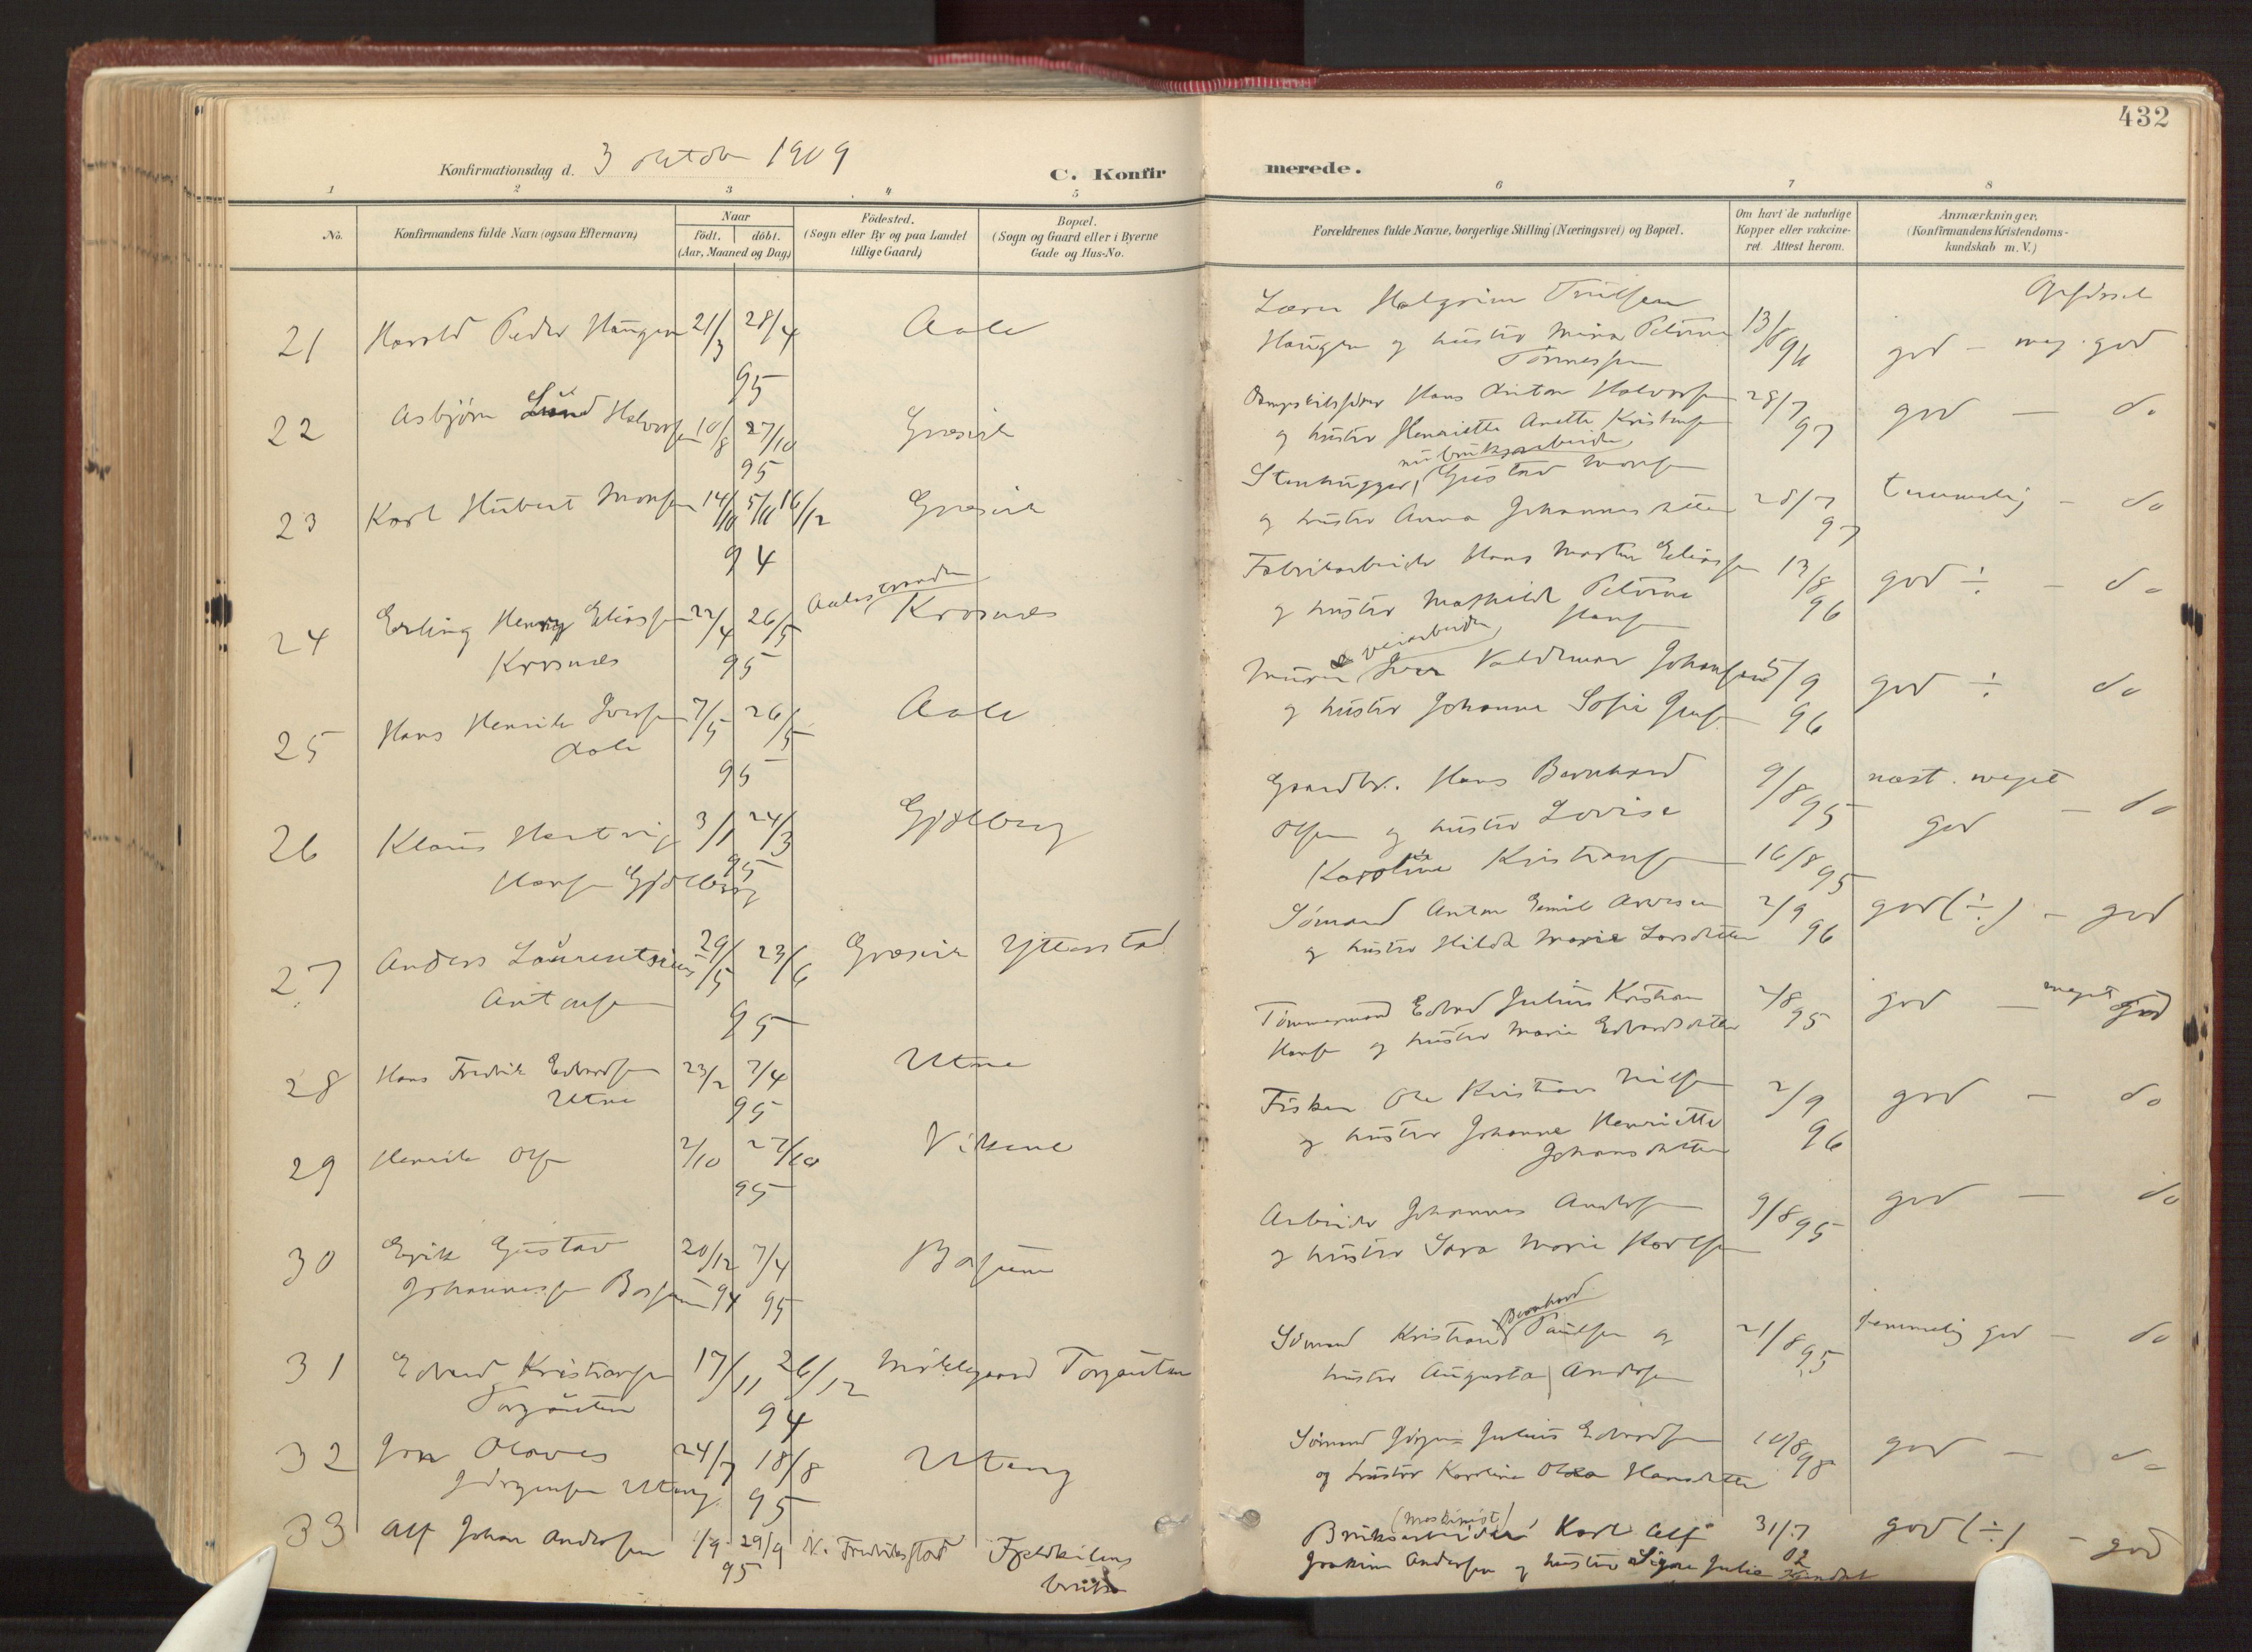 432
Konfirmationsdag d. 3 oktober 1909
C. Konfirmerede.
1 2 3 4 5 6 7 8
No.
Konfirmandens fulde Navn (ogsaa Efternavn)
Naar
födt. döbt.
(Aar, Maaned og Dag)
Födested.
(Sogn eller By og paa Landet
tillige Gaard)
Bopæl.
(Sogn og Gaard eller i Byerne
Gade og Hus-No.
Forældrenes fulde Navne, borgerlige Stilling (Næringsvei) og Bopæl.
Om havt de naturlige
Kopper eller vakcine-
ret. Attest herom.
Anmærkninger.
(Konfirmandens Kristendoms-
kundskab m. V.)
21 Harald Peder Haugen 21/3 28/4 Aale
95
Lærer Halgrim
Haugen og hustru Mina Petrine 13/8
Tönnessen 96 god – meg. god
22 Asbjørn Lund Halvorsen 10/8 27/10 Græsvik
95
Hans Anton Halvorsen 28/7
og hustru Henriette Anette Kristensen 97 god – do
23 Karl Hubert Monsen 14/10 16/12 Græsvik
94
nu bruksarbeider
Stenhugger, Gustav Monsen
og hustru Anna Johannesdatter 28/7 97 temmelig – do
24 Erling Henry Eliassen 22/4 26/5 Krosnes
Krosnes 95
Fabrikarbeider Hans Martin Eliassen 13/8
og hustru Mathilde Petrine 96 god ÷ – do
Hansen
25 Hans Henrik Iversen 7/5 26/5 Aale
Aale 95
veiarbeider
Murer Iver Valdemar Johansen 5/9
og hustru Johanne Sofie 96 god ÷ do
26 Klaus Hartvig 3/1 24/3 Gjølberg
Hansen Gjølberg 95
Gaardbr. Hans Bernhard 9/8 95 næst. meget
Olsen og hustru Lovise god – do
Karoline Kristiansen 16/8 95
27 Anders Laurentsius 29/5 23/6 Græsvik Ytterstad
Antonsen 95
Sömand Anton Emil 2/9
og hustru Hilda Marie Larsdatter 96 god (÷) – god
28 Hans Fredrik Edvardsen 23/2 7/4 Utne
Utne 95
Tömmermand Edvard Julius Kristian 2/8
Hansen og hustru Marie Edvardsdatter 95 god – meget god
29 Henrik Olsen 2/10 27/10 Vikene
95
Fisker Ole Kristian Nilsen 2/9
og hustru Johanne Henriette 96 god – do
Johansdatter
30 Erik Gustav 20/12 7/4
Johannessen 94 95
Arbeider Johannes Andersen 9/8 95 god – do
og hustru Sara Marie Karlsen
31 Edvard Kristiansen 17/11 26/12 Torgauten
Torgauten 94
Bernhard
Sömand Kristian Paulsen og 21/8 95 temmelig god – do
hustru Augusta Andersen
32 Olaves 24/7 18/8 Uteng
Jörgensen Uteng 95
Sömand Jörgen Julius Edvardsen 10/8 98 god – do
og hustru Karoline Olea Hansdatter
33 Alf Johan Andersen 1/9 29/9 N. Fredriksstad
95
(maskinist)
Bruksarbeider Karl Alf 31/7 god (÷) – god
Joakim Andersen og hustru Signe Julie 02